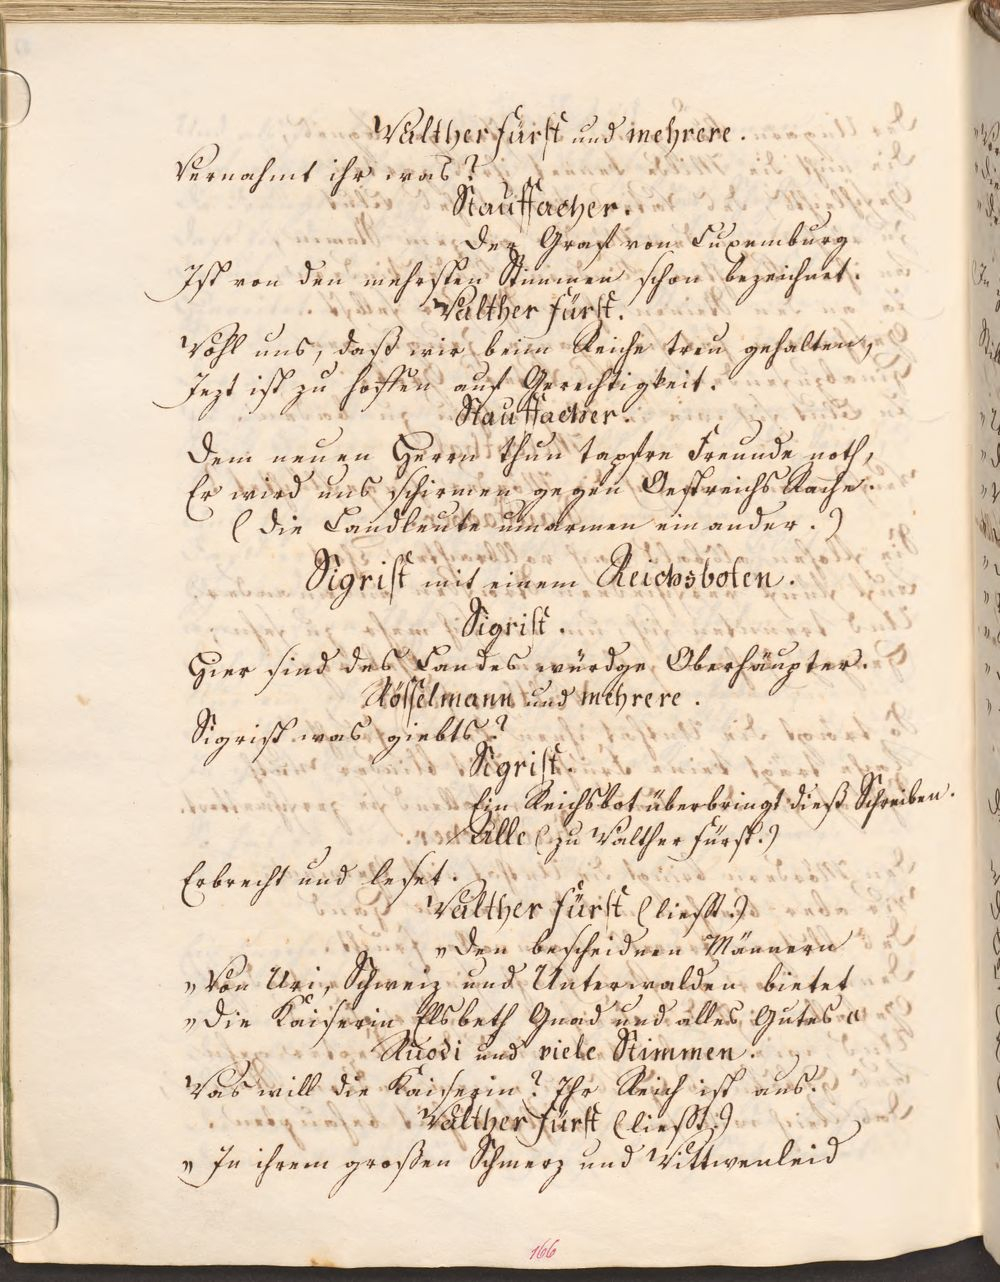 Walther Fürst und mehrere.
Vernahmt ihr was?
Stauffacher.
Der Graf von Luxemburg
Ist von den mehrsten Stimmen schon bezeichnet.
Walther Fürst.
Wohl uns, daß wir beim Reiche treu gehalten,
Jezt ist zu hoffen auf Gerechtigkeit.
Stauffacher.
Dem neuen Herrn thun tapfre Freunde noth,
Er wird uns schirmen gegen Oestreichs Rache.
(Die Landleute umarmen einander.)
Sigrist mit einem Reichsboten.
Sigrist.
Hier sind des Landes würdge Oberhäupter.
Rösselmann und mehrere.
Sigrist was giebts?
Sigrist.
Ein Reichsbot überbringt dieß Schreiben.
Alle (zu Walther Fürst.)
Erbrecht und leset.
Walther Fürst (liest.)
"Den bescheidnen Männern
"Von Uri, Schweiz und Unterwalden bietet
"Die Kaiserin Elsbeth Gnad und alles Gutes"
Ruodi und viele Stimmen.
Was will die Kaiserin? Ihr Reich ist aus.
Walther Fürst (liest.)
"In ihrem großen Schmerz und Wittwenleid
166